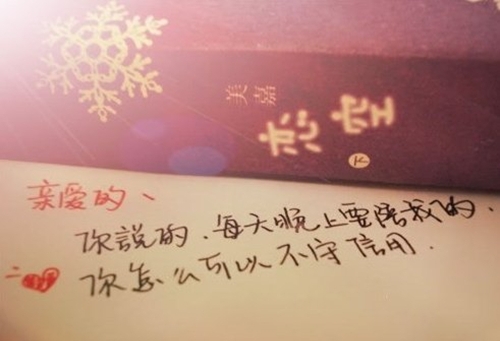 美嘉
恋空
下
亲爱的、
你說的、每天晚上要陪我的、
你怎么可以不守信用.